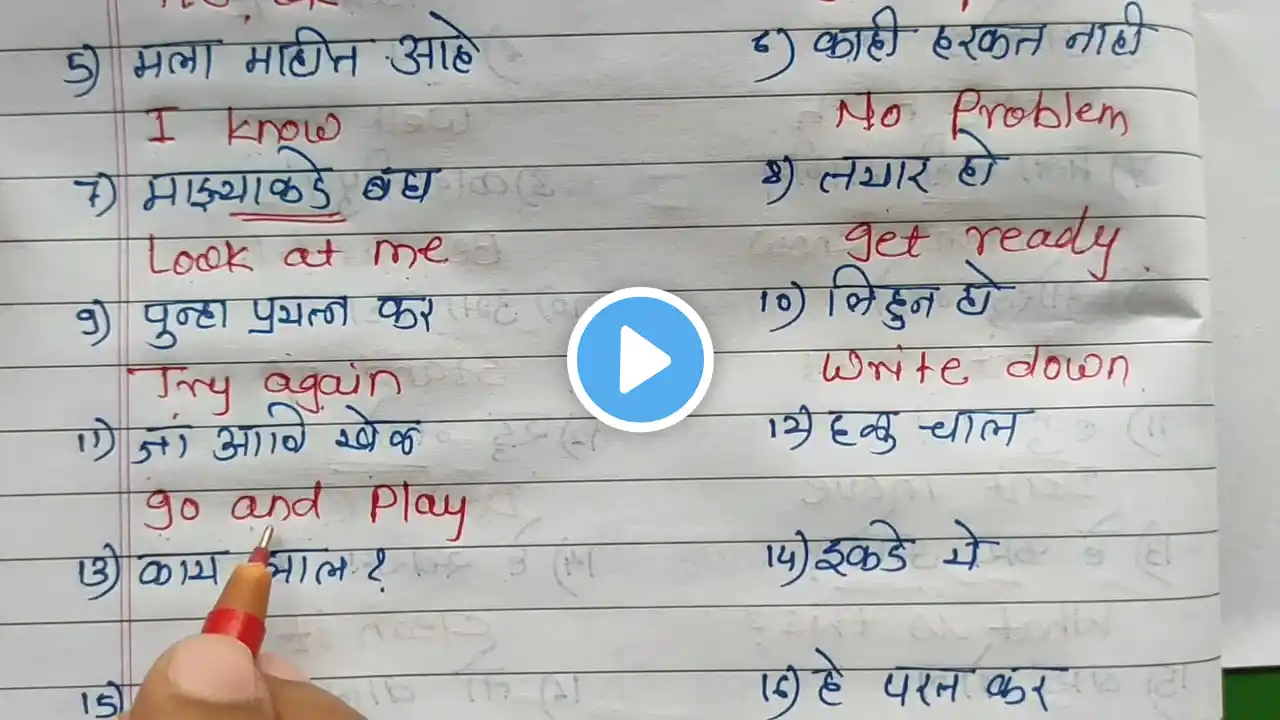 5) मला माहीत आहे
6) काही हरकत नाही
I know
No Problem
7) माझ्याकडे बघ
8) तयार हो
Look at me
get ready
9) पुन्हा प्रयत्न कर
10) लिहुन हो
Try again
Write down
11) जा आणि खेळ
12) हळु चाल
go and Play
13) काय झाल?
14) इकडे ये
15)
16) हे परत कर